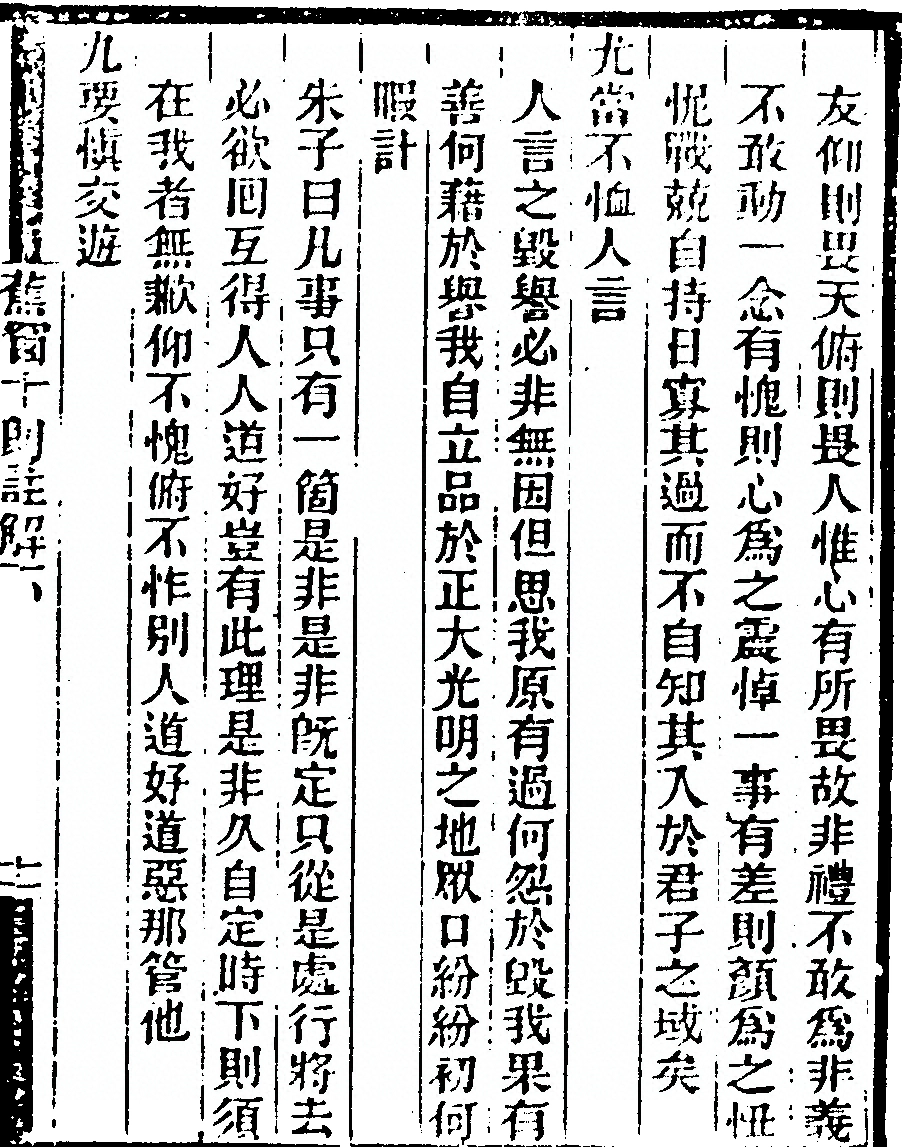 友仰則畏天俯則畏人惟心有所畏故非禮不敢爲非義
不敢動一念有愧則心爲之震悼一事有差則顏爲之忸
怩戰兢自持日寡其過而不自知其入於君子之域矣
尤當不恤人言
人言之毀譽必非無因但思我原有過何怨於毀我果有
善何藉於譽我自立品於正大光明之地眾口紛紛初何
暇計
朱子曰凡事只有一箇是非是非旣定只從是處行將去
必欲囘互得人人道好豈有此理是非久自定時下則須
在我者無歉仰不愧俯不怍別人道好道惡那管他
九要慎交遊
蕉窗十則註解六
十一